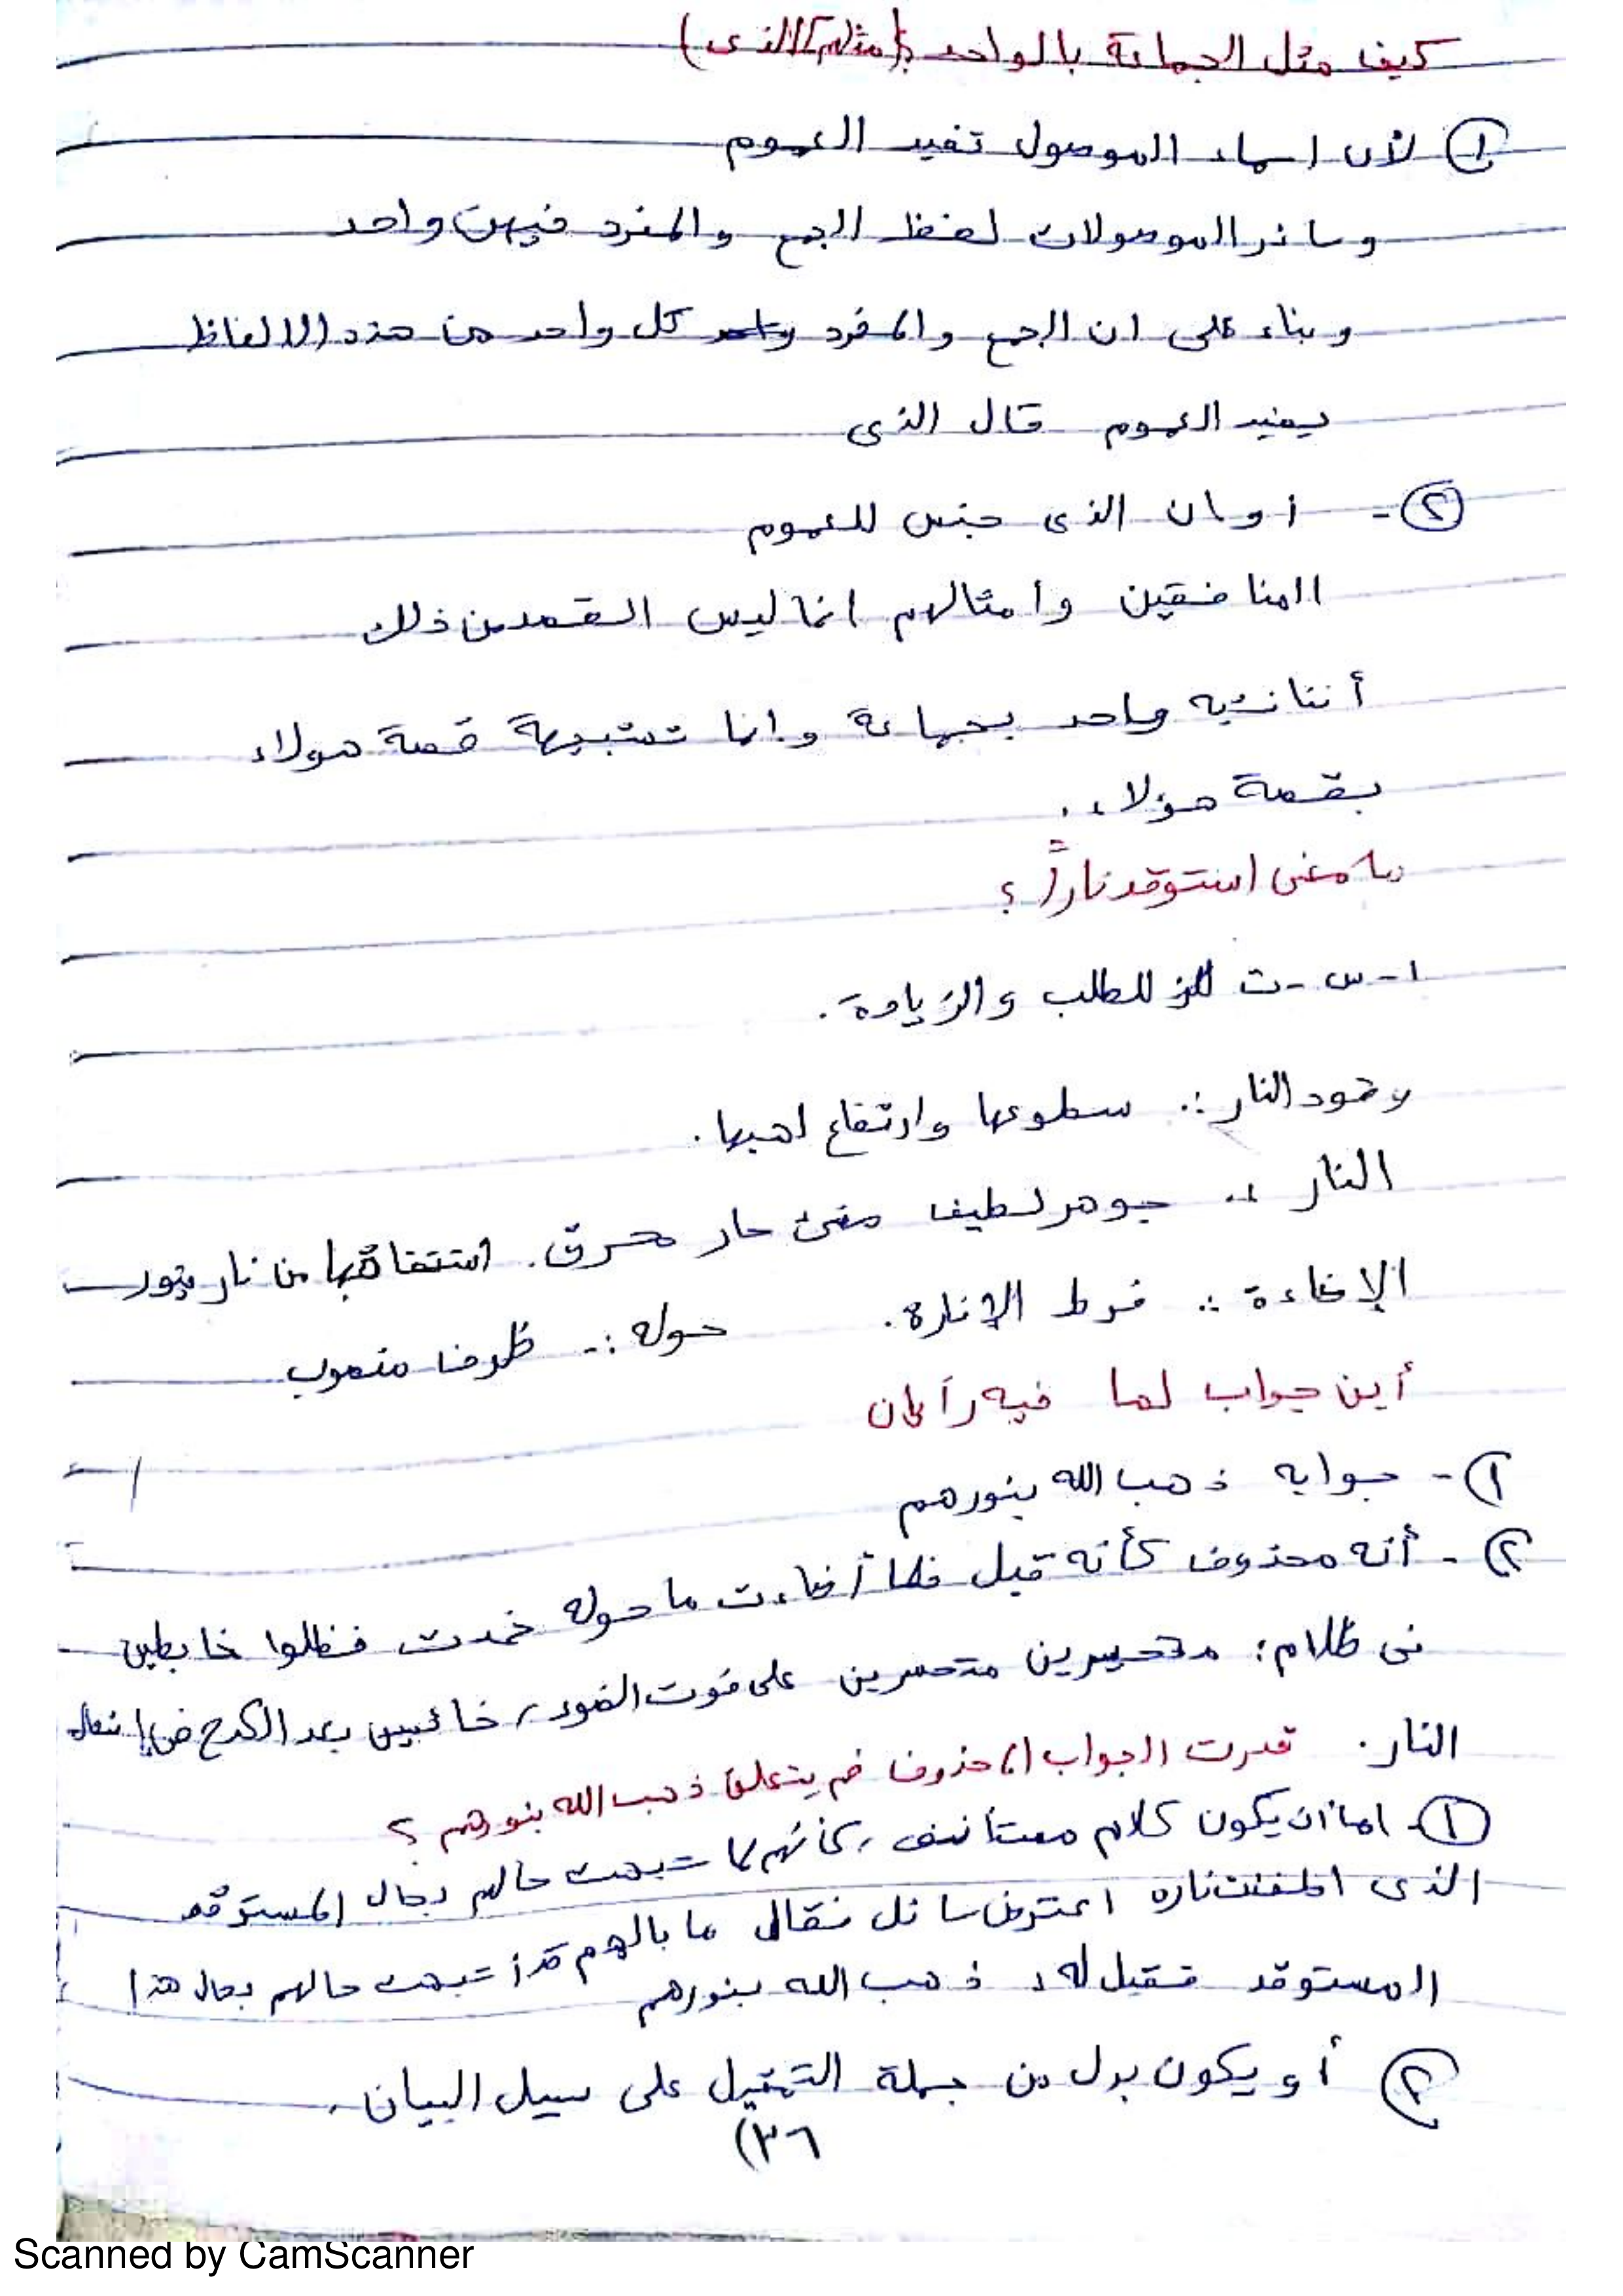 كيف مثل الجماعة بالواحد ؟ (مثلهم / الذى)
① لأن اسماء الموصول تفيد العموم
وسائر الموصولات لفظ الجمع والمفرد فيهن واحد
وبناء على ان الجمع والمفرد كل واحد من هذه الالفاظ
يفيد العموم قال الذى
②- او ان الذى جنس للعموم
المنافقين وامثالهم انما ليس القصد من ذلك
أننا نشبه واحد بجماعة وانما تشبيهة قصة هولاء
بقصة هؤلاء .
ما معنى استوقد ناراً ؟
١- س - ت للطلب والزيادة .
وقود النار :. سطوعها وارتفاع لهبها .
النار :. جوهر لطيف مضئ حار محرق . اشتقاقها من نار ينور
الإضاءة :. فرط الإنارة . حوله :. ظرف منصوب
أين جواب لما فيه رأيان
١- جوابه ذهب الله بنورهم
٢- أنه محذوف كأنه قيل فلما أضاءت ما حوله خمدت فظلوا خابطين
فى ظلام؛ متحيرين متحسرين على فوت الضوء، خائبين بعد الكدح فى إشعال
النار. قدرت الجواب المحذوف فبم يتعلق ذهب الله بنورهم ؟
① اما ان يكون كلام مستأنف، كأنهم لما شبهت حالهم بحال المستوقد
الذى اطفئت ناره اعترض سائل فقال ما بالهم قد أشبهت حالهم بحال هذا
المستوقد فقيل له: ذهب الله بنورهم
② أو يكون بدل من جملة التمثيل على سبيل البيان .
(٣٦
Scanned by CamScanner